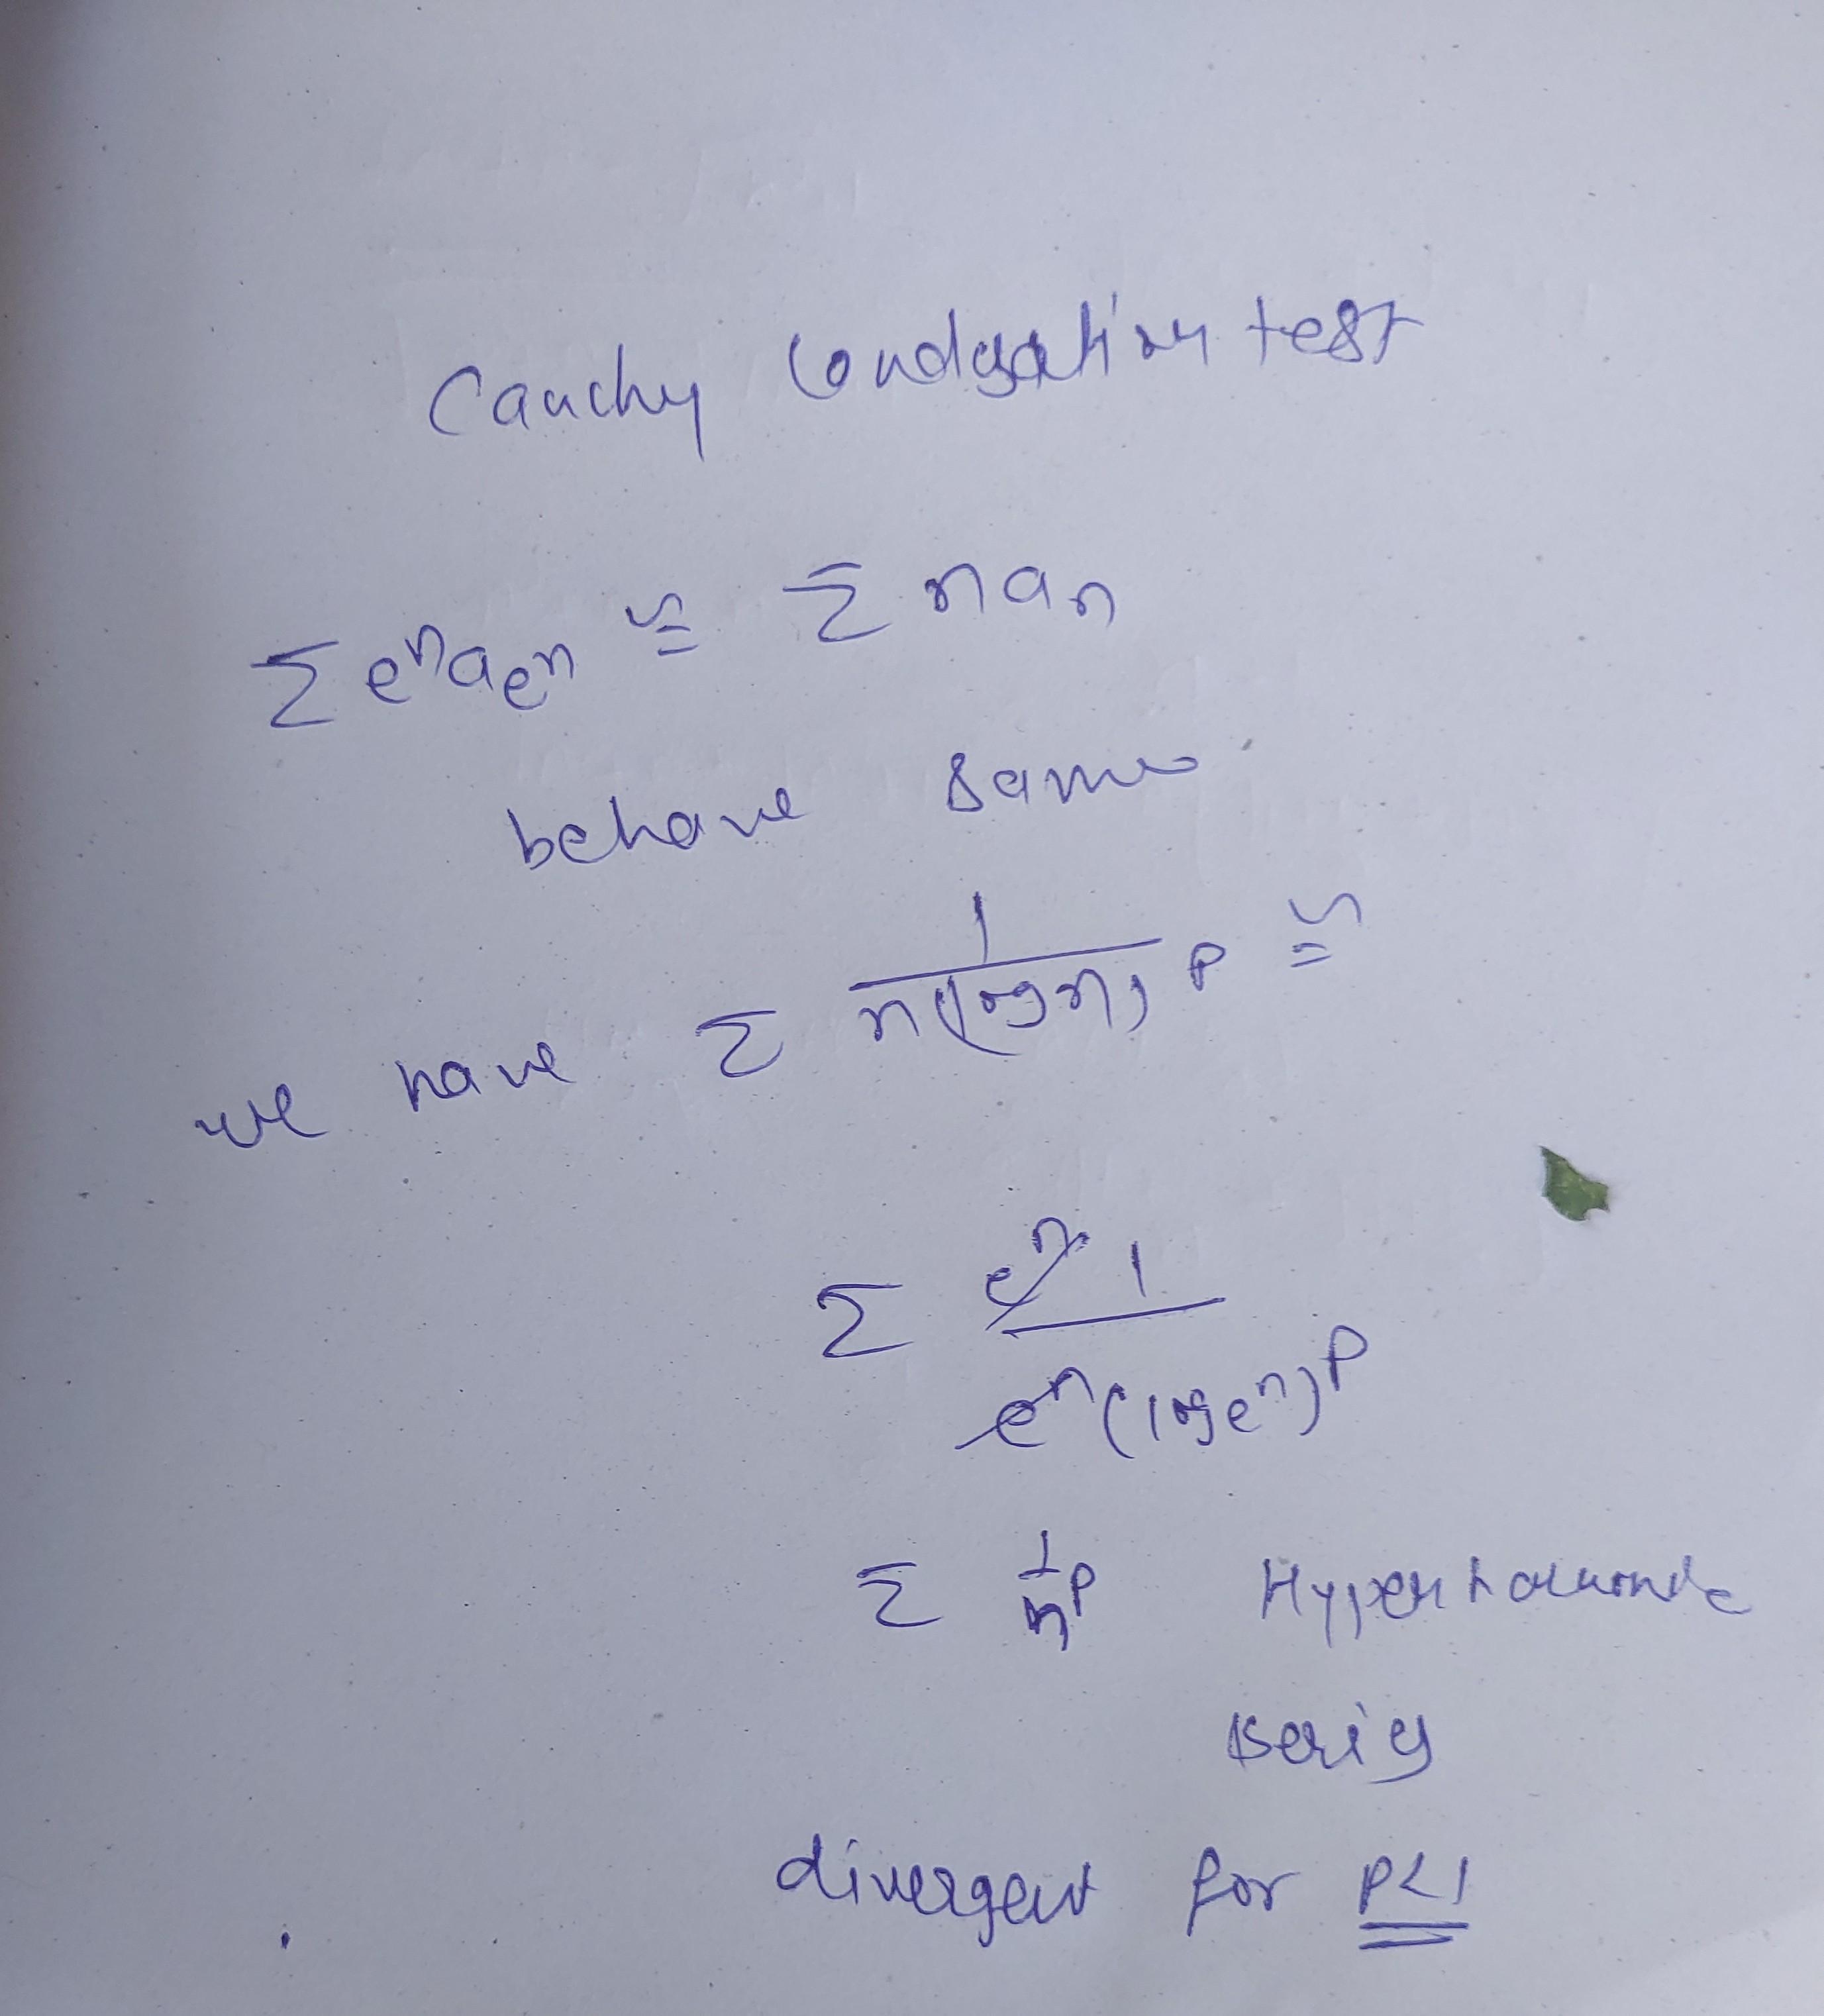 Cauchy Condgation test
Σ eⁿaₑₙ ≅ Σ n aₙ
behave same
we have Σ 1/n(logn)^P ≅
Σ eⁿ 1/eⁿ(log eⁿ)^P
Σ 1/n^P Hyperharmonic
series
divergent for P<1